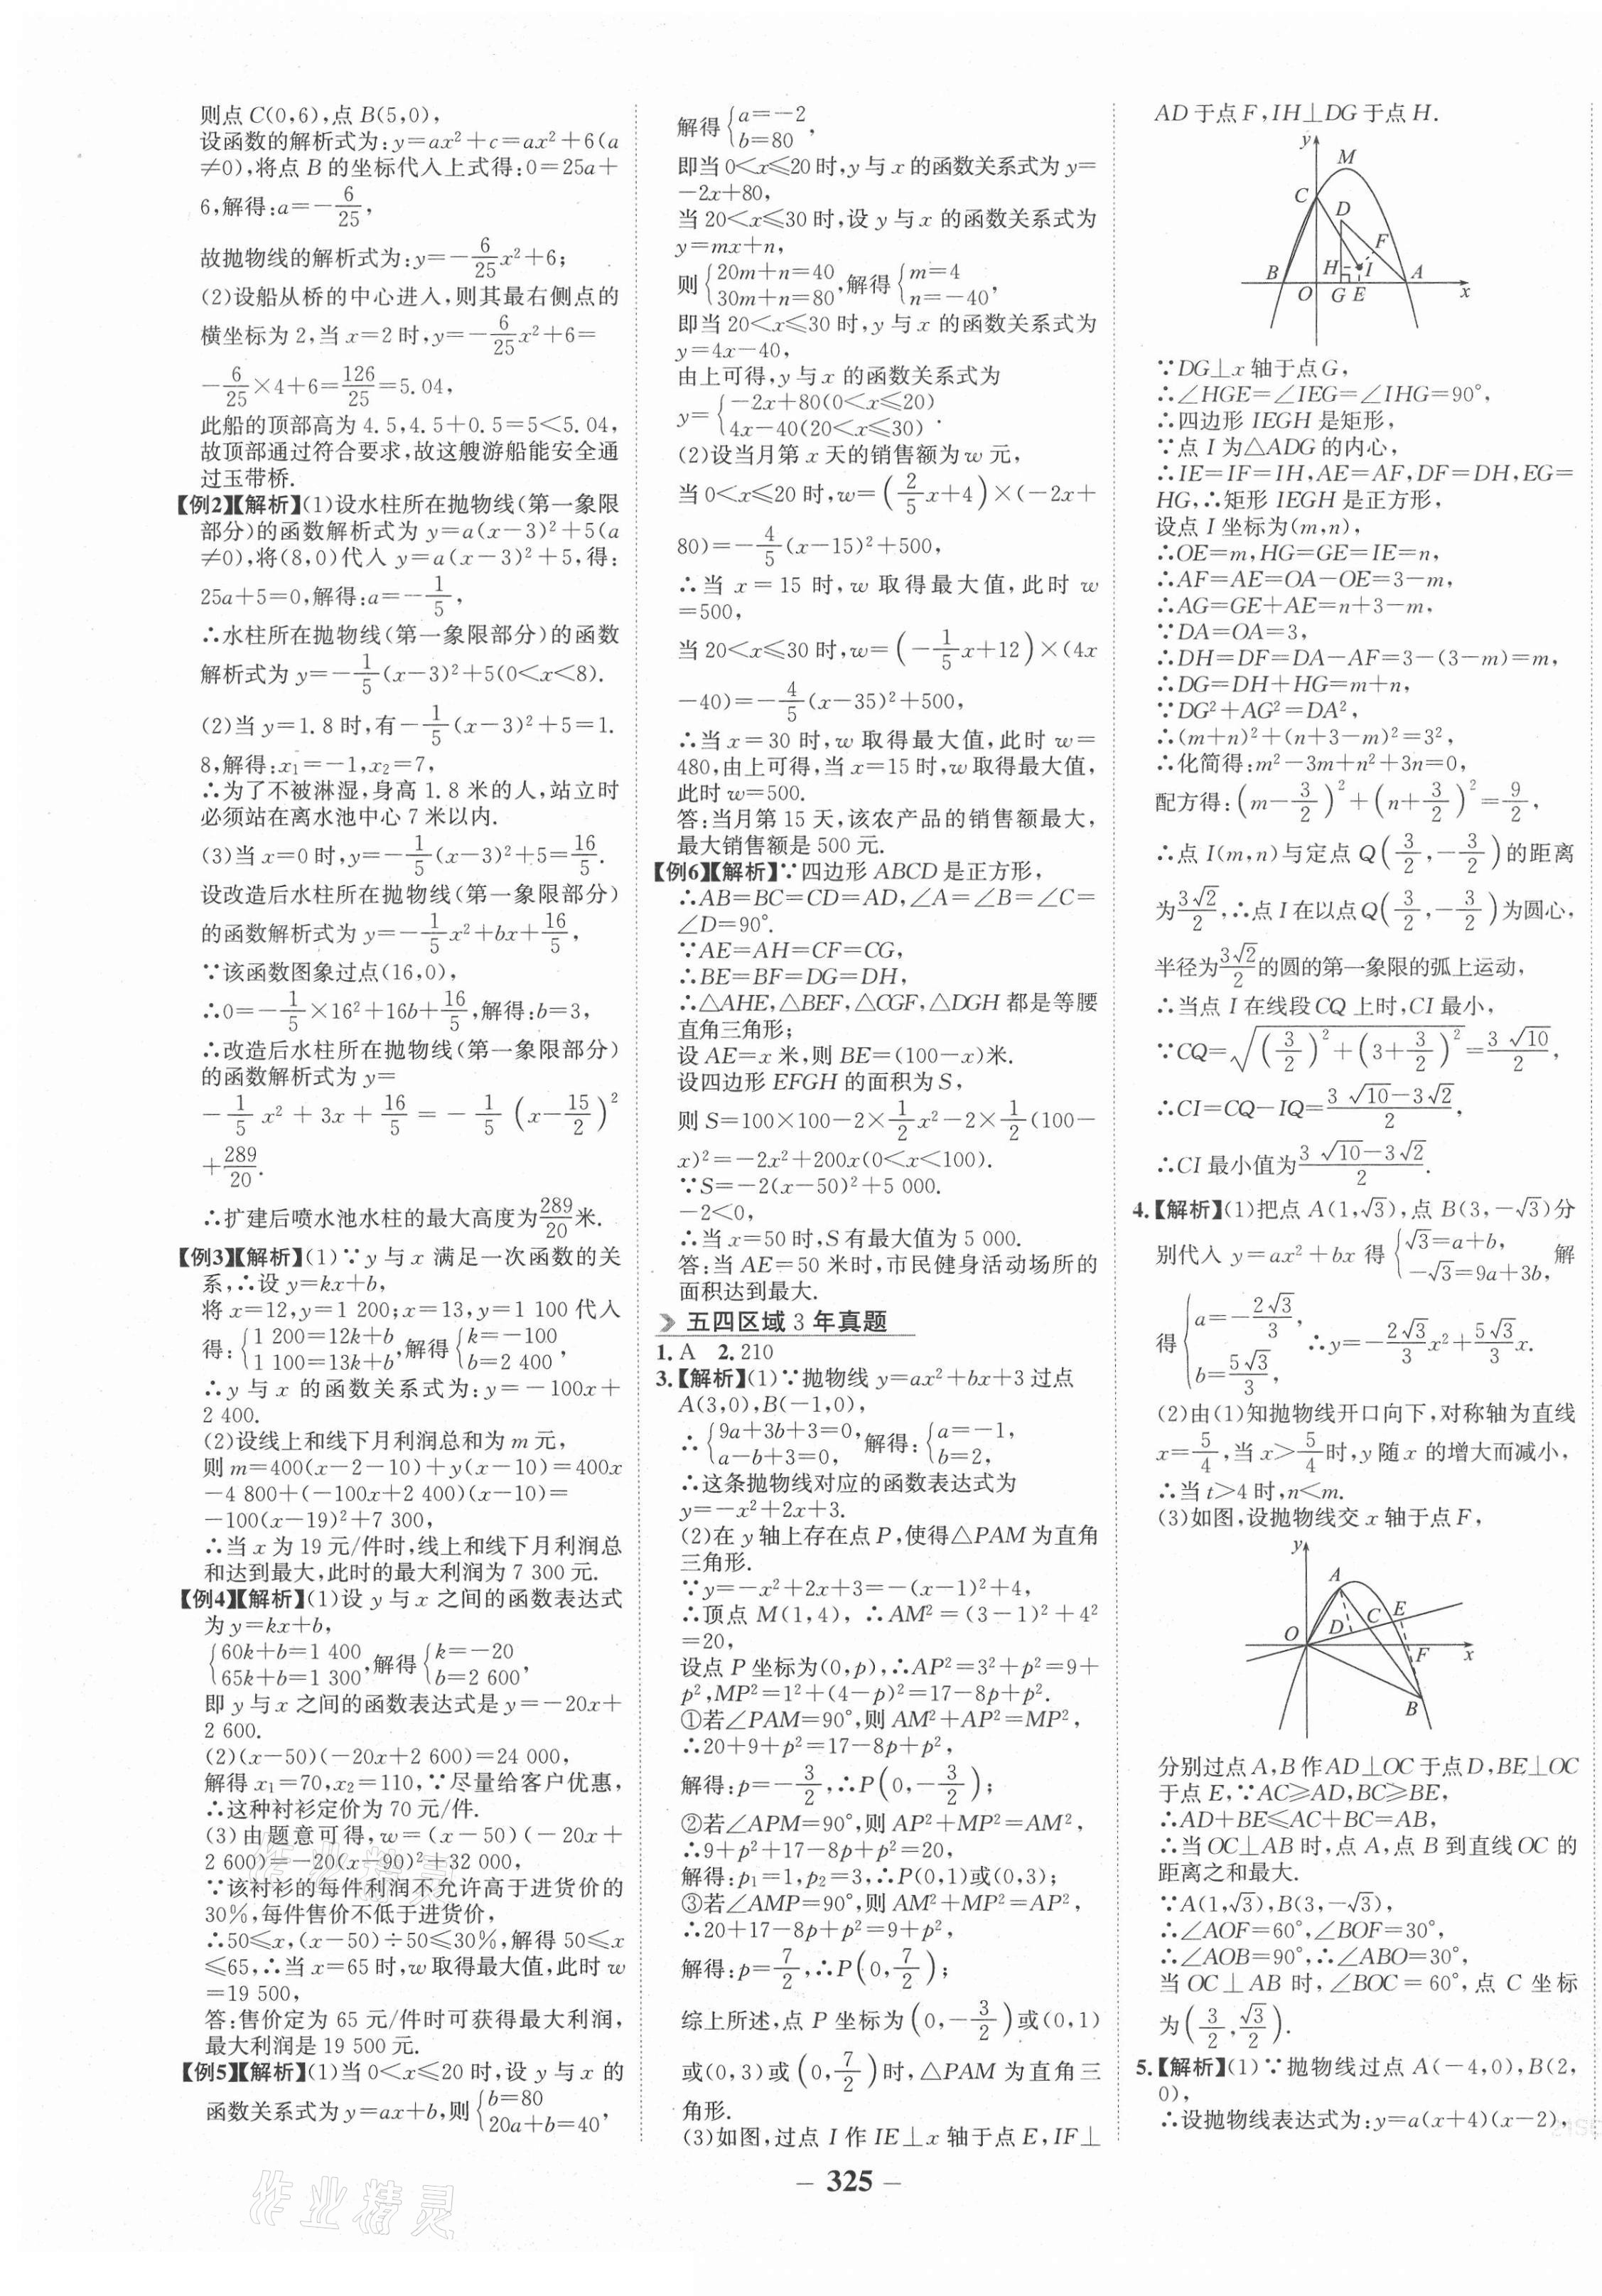 则点 C(0,6),点 B(5,0),
设函数的解析式为:y=ax²+c=ax²+6(a
≠0),将点 B 的坐标代入上式得:0=25a+
6,解得:a=-6/25,
故抛物线的解析式为:y=-6/25x²+6;
(2)设船从桥的中心进入,则其最右侧点的
横坐标为 2,当 x=2 时,y=-6/25x²+6=
-6/25×4+6=126/25=5.04,
此船的顶部高为 4.5,4.5+0.5=5<5.04,
故顶部通过符合要求,故这艘游船能安全通
过玉带桥.
【例2】【解析】(1)设水柱所在抛物线(第一象限
部分)的函数解析式为 y=a(x-3)²+5(a
≠0),将(8,0)代入 y=a(x-3)²+5,得:
25a+5=0,解得:a=-1/5,
∴水柱所在抛物线(第一象限部分)的函数
解析式为 y=-1/5(x-3)²+5(0<x<8).
(2)当 y=1.8 时,有-1/5(x-3)²+5=1.
8,解得:x₁=-1,x₂=7,
∴为了不被淋湿,身高 1.8 米的人,站立时
必须站在离水池中心 7 米以内.
(3)当 x=0 时,y=-1/5(x-3)²+5=16/5.
设改造后水柱所在抛物线(第一象限部分)
的函数解析式为 y=-1/5x²+bx+16/5,
∵该函数图象过点(16,0),
∴0=-1/5×16²+16b+16/5,解得:b=3,
∴改造后水柱所在抛物线(第一象限部分)
的函数解析式为 y=
-1/5 x² + 3x + 16/5 = -1/5 (x-15/2)²
+289/20.
∴扩建后喷水池水柱的最大高度为289/20米.
【例3】【解析】(1)∵y 与 x 满足一次函数的关
系,∴设 y=kx+b,
将 x=12,y=1 200;x=13,y=1 100 代入
得:{1 200=12k+b 1 100=13k+b,解得{k=-100 b=2 400,
∴y 与 x 的函数关系式为:y=-100x+
2 400.
(2)设线上和线下月利润总和为 m 元,
则 m=400(x-2-10)+y(x-10)=400x
-4 800+(-100x+2 400)(x-10)=
-100(x-19)²+7 300,
∴当 x 为 19 元/件时,线上和线下月利润总
和达到最大,此时的最大利润为 7 300 元.
【例4】【解析】(1)设 y 与 x 之间的函数表达式
为 y=kx+b,
{60k+b=1 400 65k+b=1 300,解得{k=-20 b=2 600,
即 y 与 x 之间的函数表达式是 y=-20x+
2 600.
(2)(x-50)(-20x+2 600)=24 000,
解得 x₁=70,x₂=110,∵尽量给客户优惠,
∴这种衬衫定价为 70 元/件.
(3)由题意可得,w=(x-50)(-20x+
2 600)=-20(x-90)²+32 000,
∵该衬衫的每件利润不允许高于进货价的
30%,每件售价不低于进货价,
∴50≤x,(x-50)÷50≤30%,解得 50≤x
≤65,∴当 x=65 时,w 取得最大值,此时 w
=19 500,
答:售价定为 65 元/件时可获得最大利润,
最大利润是 19 500 元.
【例5】【解析】(1)当 0<x≤20 时,设 y 与 x 的
函数关系式为 y=ax+b,则{b=80 20a+b=40,
解得{a=-2 b=80,
即当 0<x≤20 时,y 与 x 的函数关系式为 y=
-2x+80,
当 20<x≤30 时,设 y 与 x 的函数关系式为
y=mx+n,
则{20m+n=40 30m+n=80,解得{m=4 n=-40,
即当 20<x≤30 时,y 与 x 的函数关系式为
y=4x-40,
由上可得,y 与 x 的函数关系式为
y={-2x+80(0<x≤20) 4x-40(20<x≤30).
(2)设当月第 x 天的销售额为 w 元,
当 0<x≤20 时,w=(2/5x+4)×(-2x+
80)=-4/5(x-15)²+500,
∴当 x=15 时,w 取得最大值,此时 w
=500,
当 20<x≤30 时,w=(-1/5x+12)×(4x
-40)=-4/5(x-35)²+500,
∴当 x=30 时,w 取得最大值,此时 w=
480,由上可得,当 x=15 时,w 取得最大值,
此时 w=500.
答:当月第 15 天,该农产品的销售额最大,
最大销售额是 500 元.
【例6】【解析】∵四边形 ABCD 是正方形,
∴AB=BC=CD=AD,∠A=∠B=∠C=
∠D=90°.
∵AE=AH=CF=CG,
∴BE=BF=DG=DH,
∴△AHE,△BEF,△CGF,△DGH 都是等腰
直角三角形;
设 AE=x 米,则 BE=(100-x)米.
设四边形 EFGH 的面积为 S,
则 S=100×100-2×1/2x²-2×1/2(100-
x)²=-2x²+200x(0<x<100).
∵S=-2(x-50)²+5 000.
-2<0,
∴当 x=50 时,S 有最大值为 5 000.
答:当 AE=50 米时,市民健身活动场所的
面积达到最大.
五四区域 3 年真题
1. A 2. 210
3.【解析】(1)∵抛物线 y=ax²+bx+3 过点
A(3,0),B(-1,0),
∴{9a+3b+3=0, a-b+3=0, 解得:{a=-1, b=2,
∴这条抛物线对应的函数表达式为
y=-x²+2x+3.
(2)在 y 轴上存在点 P,使得△PAM 为直角
三角形.
∵y=-x²+2x+3=-(x-1)²+4,
∴顶点 M(1,4),∴AM²=(3-1)²+4²
=20,
设点 P 坐标为(0,p),∴AP²=3²+p²=9+
p²,MP²=1²+(4-p)²=17-8p+p².
①若∠PAM=90°,则 AM²+AP²=MP²,
∴20+9+p²=17-8p+p²,
解得:p=-3/2,∴P(0,-3/2);
②若∠APM=90°,则 AP²+MP²=AM²,
∴9+p²+17-8p+p²=20,
解得:p₁=1,p₂=3,∴P(0,1)或(0,3);
③若∠AMP=90°,则 AM²+MP²=AP²,
∴20+17-8p+p²=9+p²,
解得:p=7/2,∴P(0,7/2);
综上所述,点 P 坐标为(0,-3/2)或(0,1)
或(0,3)或(0,7/2)时,△PAM 为直角三
角形.
(3)如图,过点 I 作 IE⊥x 轴于点 E,IF⊥
AD 于点 F,IH⊥DG 于点 H.
y
M
C
D
F
B
H
I
A
O
G
E
x
∵DG⊥x 轴于点 G,
∴∠HGE=∠IEG=∠IHG=90°,
∴四边形 IEGH 是矩形,
∵点 I 为△ADG 的内心,
∴IE=IF=IH,AE=AF,DF=DH,EG=
HG,∴矩形 IEGH 是正方形,
设点 I 坐标为(m,n),
∴OE=m,HG=GE=IE=n,
∴AF=AE=OA-OE=3-m,
∴AG=GE+AE=n+3-m,
∵DA=OA=3,
∴DH=DF=DA-AF=3-(3-m)=m,
∴DG=DH+HG=m+n,
∵DG²+AG²=DA²,
∴(m+n)²+(n+3-m)²=3²,
∴化简得:m²-3m+n²+3n=0,
配方得:(m-3/2)²+(n+3/2)²=9/2,
∴点 I(m,n)与定点 Q(3/2,-3/2)的距离
为3√2/2,∴点 I 在以点 Q(3/2,-3/2)为圆心,
半径为3√2/2的圆的第一象限的弧上运动,
∴当点 I 在线段 CQ 上时,CI 最小,
∵CQ=√((3/2)²+(3+3/2)²)=3√10/2,
∴CI=CQ-IQ=(3√10-3√2)/2,
∴CI 最小值为(3√10-3√2)/2.
4.【解析】(1)把点 A(1,√3),点 B(3,-√3)分
别代入 y=ax²+bx 得{√3=a+b, -√3=9a+3b, 解
得{a=-2√3/3, b=5√3/3, ∴y=-2√3/3x²+5√3/3x.
(2)由(1)知抛物线开口向下,对称轴为直线
x=5/4,当 x>5/4时,y 随 x 的增大而减小,
∴当 t>4 时,n<m.
(3)如图,设抛物线交 x 轴于点 F,
y
A
O
D
C
E
F
x
B
分别过点 A,B 作 AD⊥OC 于点 D,BE⊥OC
于点 E,∵AC≥AD,BC≥BE,
∴AD+BE≤AC+BC=AB,
∴当 OC⊥AB 时,点 A,点 B 到直线 OC 的
距离之和最大.
∵A(1,√3),B(3,-√3),
∴∠AOF=60°,∠BOF=30°,
∴∠AOB=90°,∴∠ABO=30°,
当 OC⊥AB 时,∠BOC=60°,点 C 坐标
为(3/2,√3/2).
5.【解析】(1)∵抛物线过点 A(-4,0),B(2,
0),
∴设抛物线表达式为:y=a(x+4)(x-2),
- 325 -
作业精灵
作业精灵